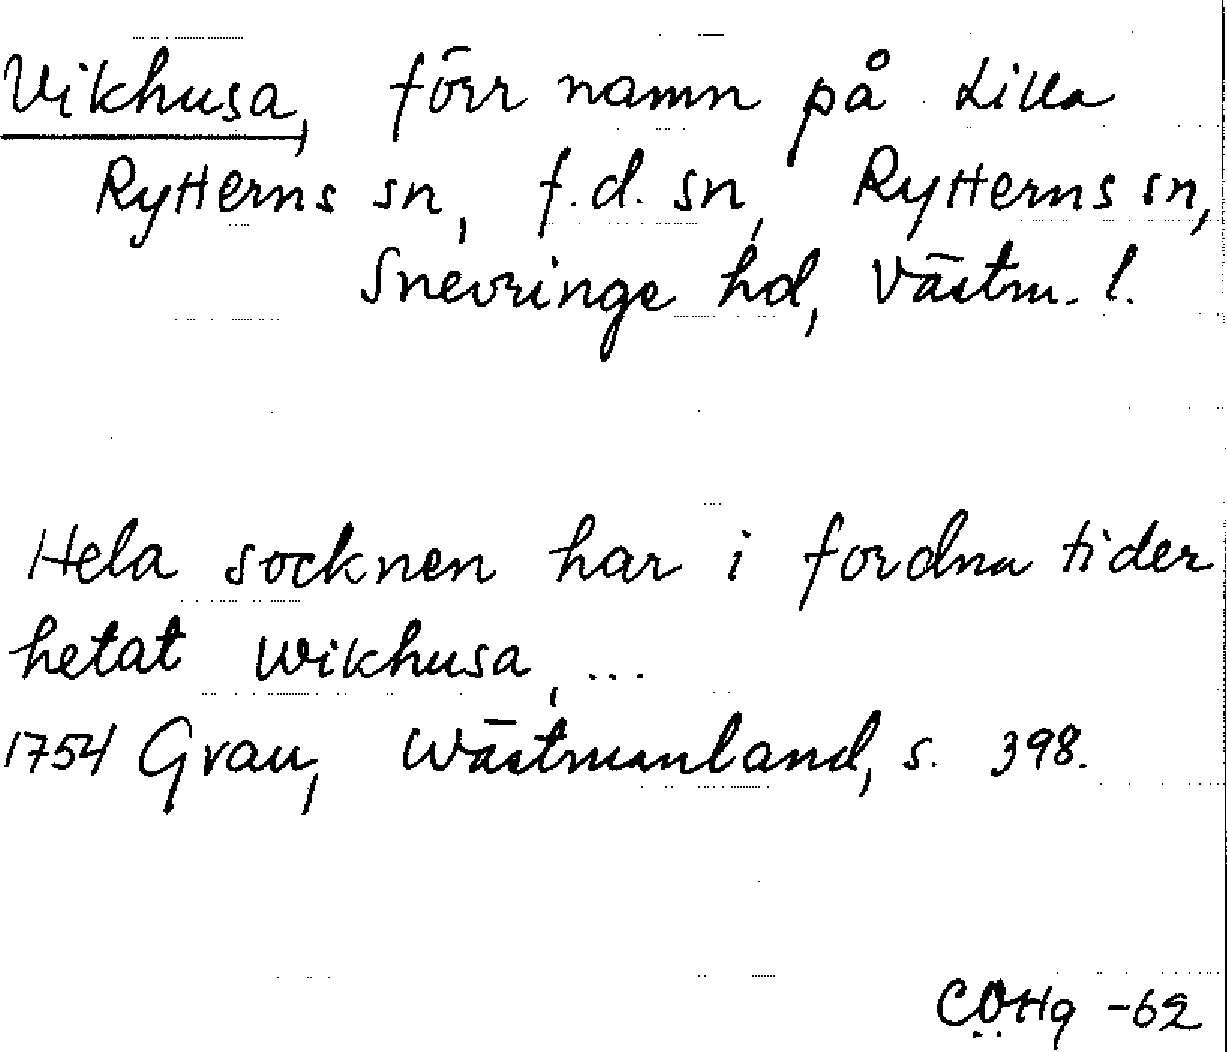 Vikhusa, förr namn på Lilla
Rytterns sn, f.d. sn, Rytterns sn,
Snevringe hd, Västm. l.
Hela socknen har i fordna tider
hetat Wikhusa, ...
1754 Grau, Wästmanland, s. 398.
CÖHg -62